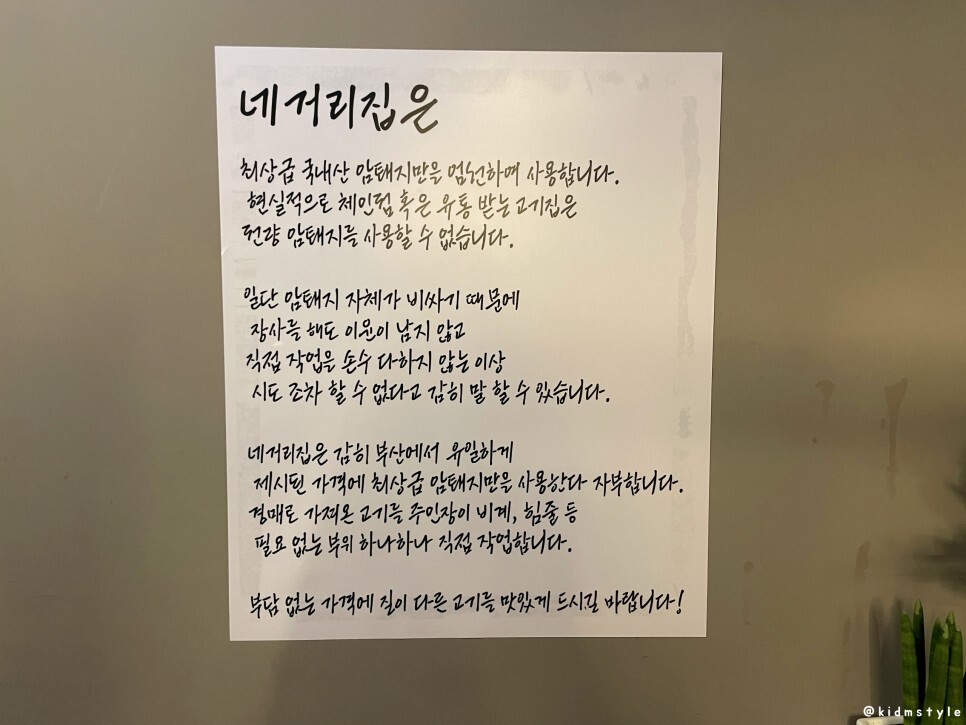 네거리집은
최상급 국내산 암퇘지만을 엄선하여 사용합니다.
현실적으로 체인점 혹은 유통 받는 고기집은
전량 암퇘지를 사용할 수 없습니다.
일단 암퇘지 자체가 비싸기 때문에
장사를 해도 이윤이 남지 않고
직접 작업을 손수 다하지 않는 이상
시도 조차 할 수 없다고 감히 말 할 수 있습니다.
네거리집은 감히 부산에서 유일하게
제시된 가격에 최상급 암퇘지만을 사용한다 자부합니다.
경매로 가져온 고기를 주인장이 비계, 힘줄 등
필요 없는 부위 하나하나 직접 작업합니다.
부담 없는 가격에 질이 다른 고기를 맛있게 드시길 바랍니다!
@kidmstyle